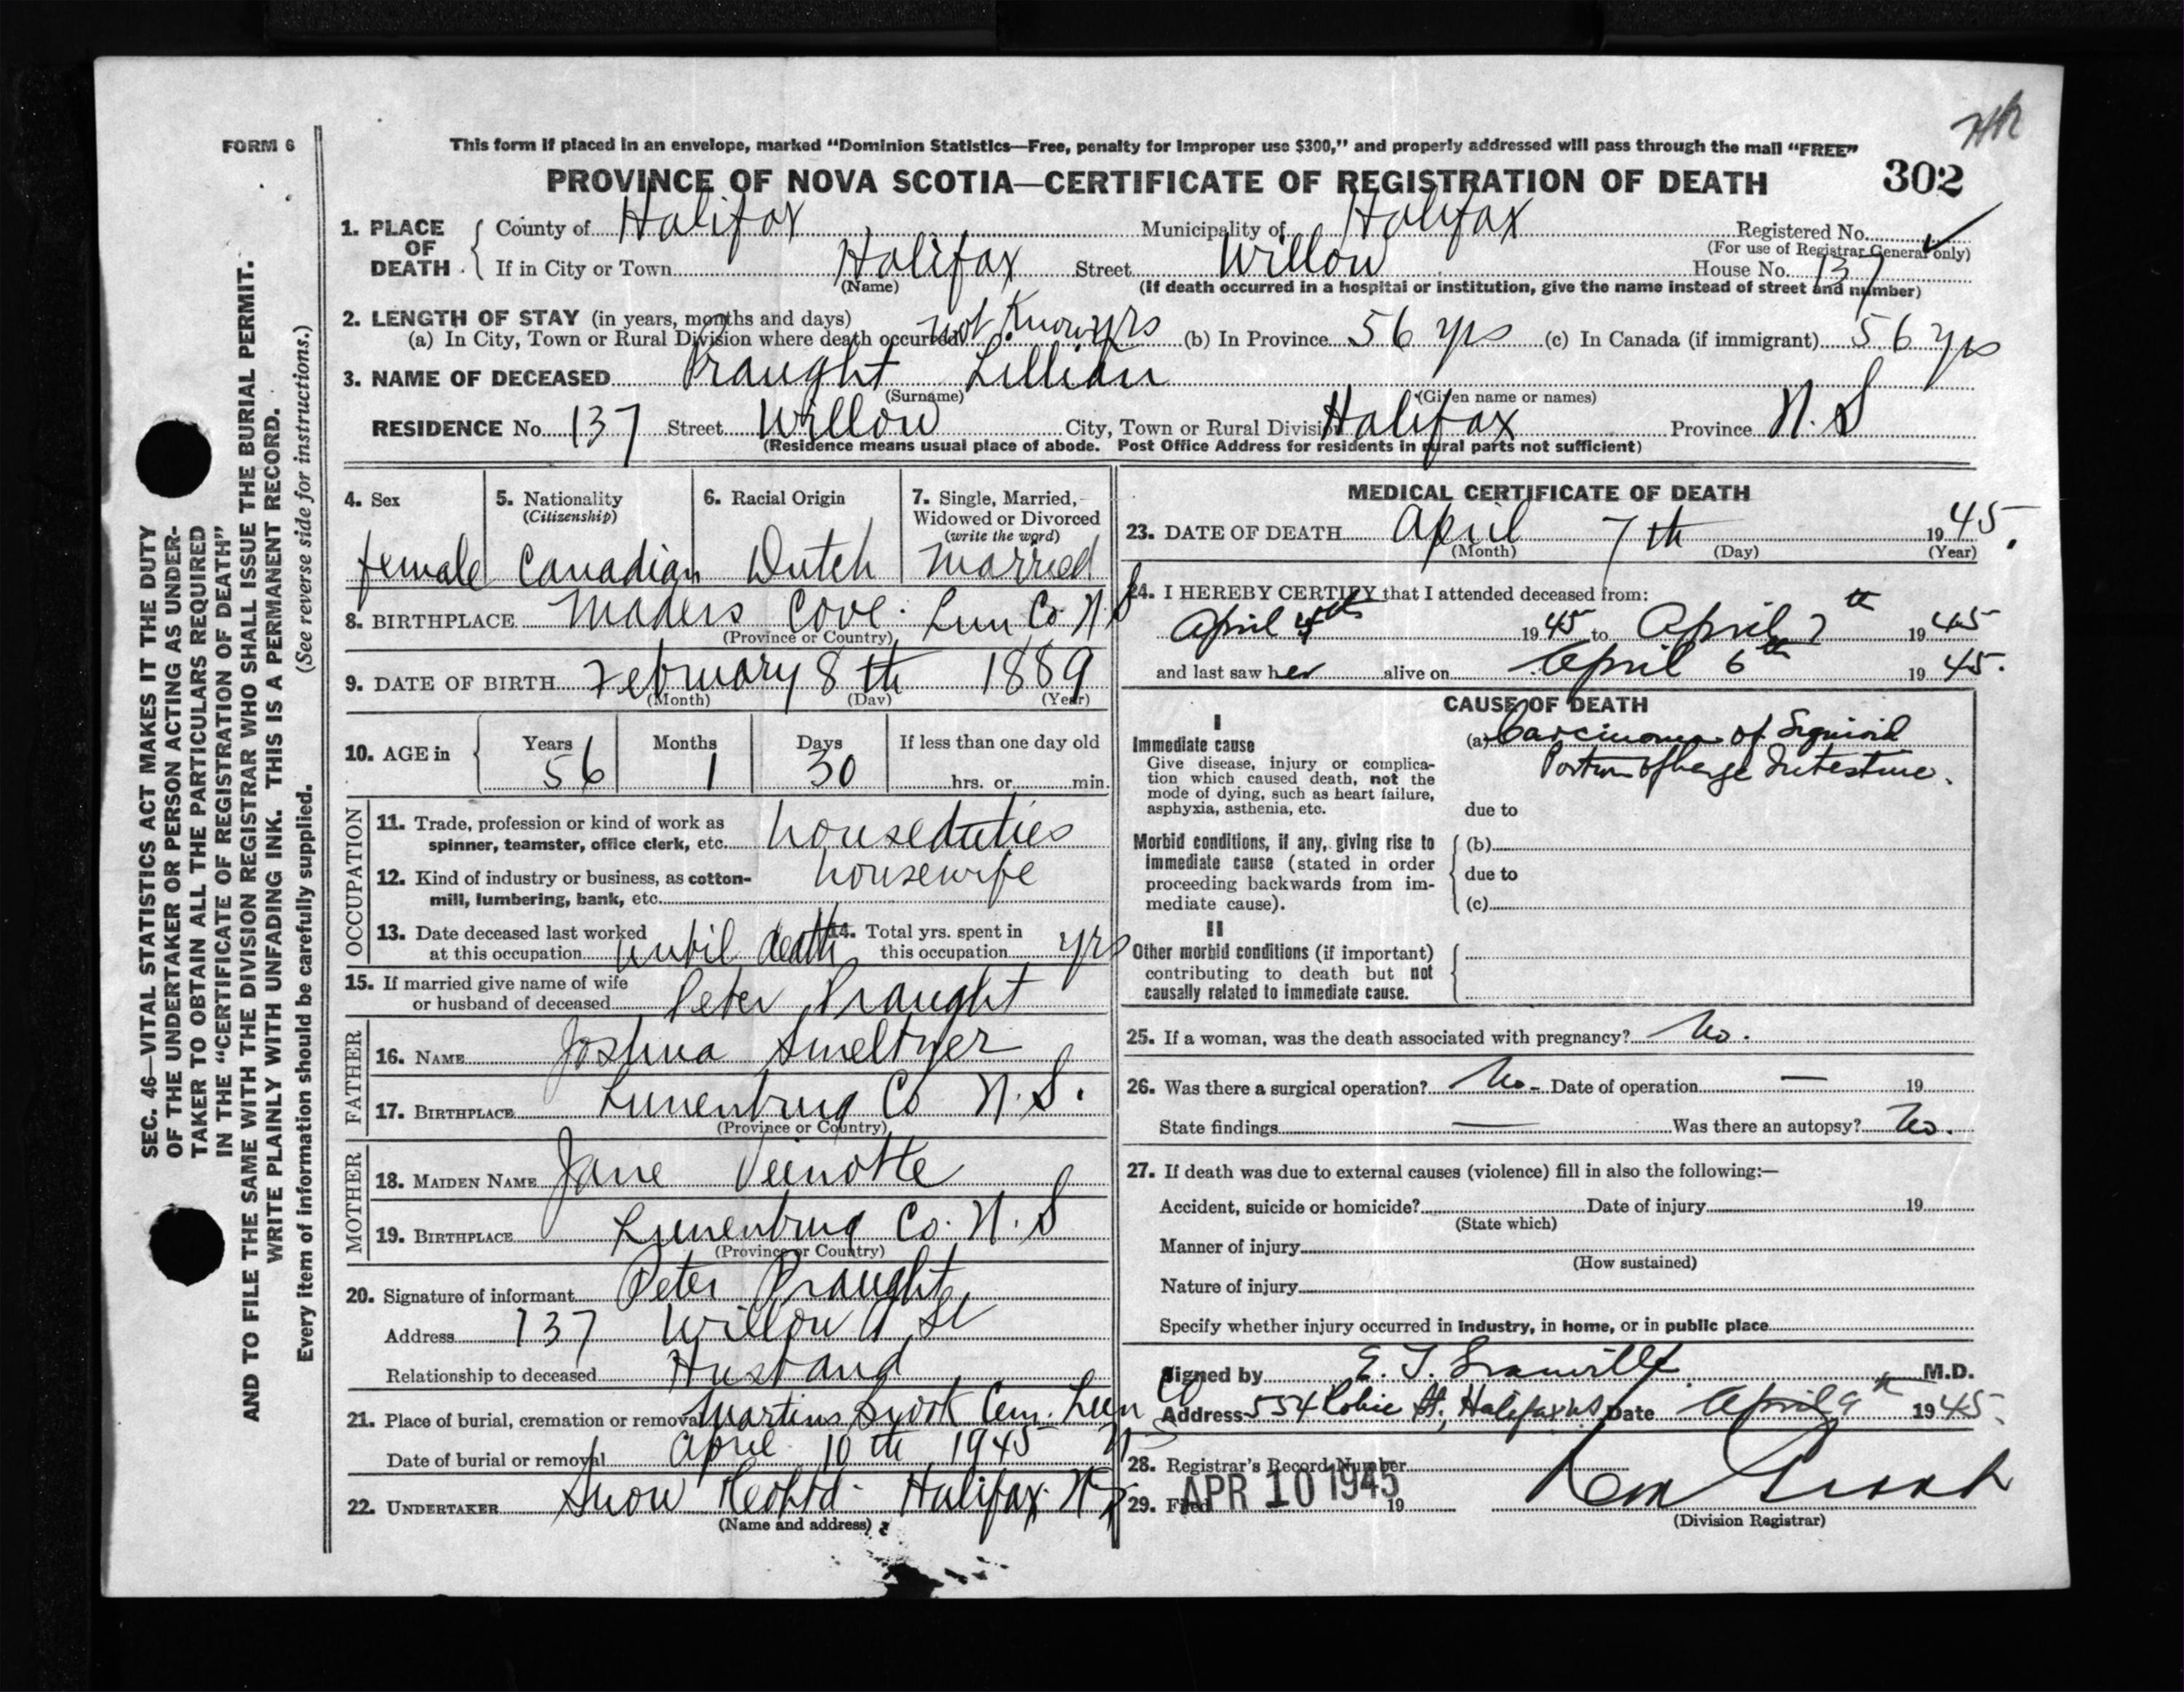 FORM 6
This form if placed in an envelope, marked “Dominion Statistics—Free, penalty for improper use $300,” and properly addressed will pass through the mail “FREE”
PROVINCE OF NOVA SCOTIA—CERTIFICATE OF REGISTRATION OF DEATH 302
1. PLACE OF DEATH County of Halifax Municipality of Halifax Registered No.
(For use of Registrar General only)
If in City or Town Halifax Street Willow House No. 137
(Name) (If death occurred in a hospital or institution, give the name instead of street and number)
2. LENGTH OF STAY (in years, months and days)
(a) In City, Town or Rural Division where death occurred not Known yrs (b) In Province 56 yrs (c) In Canada (if immigrant) 56 yrs
3. NAME OF DECEASED Praught Lillian
(Surname) (Given name or names)
RESIDENCE No. 137 Street Willow City, Town or Rural Division Halifax Province N.S
(Residence means usual place of abode. Post Office Address for residents in rural parts not sufficient)
4. Sex 5. Nationality 6. Racial Origin 7. Single, Married,
(Citizenship) Widowed or Divorced
(write the word)
female Canadian Dutch Married
8. BIRTHPLACE Maders Cove. Lun Co N.S
(Province or Country)
9. DATE OF BIRTH February 8th 1889
(Month) (Day) (Year)
10. AGE in Years Months Days If less than one day old
56 1 30 hrs. or min.
OCCUPATION
11. Trade, profession or kind of work as
spinner, teamster, office clerk, etc. houseduties
12. Kind of industry or business, as cotton-
mill, lumbering, bank, etc. housewife
13. Date deceased last worked 14. Total yrs. spent in
at this occupation until death this occupation yrs
15. If married give name of wife
or husband of deceased Peter Praught
FATHER
16. NAME Joshua Smeltzer
17. BIRTHPLACE Lunenburg Co N.S.
(Province or Country)
MOTHER
18. MAIDEN NAME Jane Veinotte
19. BIRTHPLACE Lunenburg Co. N.S
(Province or Country)
20. Signature of informant Peter Praught
Address 137 Willow St
Relationship to deceased Husband
21. Place of burial, cremation or removal Martins Cem. Lun Co
N S
Date of burial or removal April 10th 1945
22. UNDERTAKER Snow Halifax. N.S
(Name and address)
MEDICAL CERTIFICATE OF DEATH
23. DATE OF DEATH April 7th 1945.
(Month) (Day) (Year)
24. I HEREBY CERTIFY that I attended deceased from:
April 1945 to April 7th 1945
and last saw her alive on April 6th 1945.
CAUSE OF DEATH
I
Immediate cause
Give disease, injury or complica-
tion which caused death, not the
mode of dying, such as heart failure,
asphyxia, asthenia, etc.
(a) Carcinoma of Sigmoid
Portion of Large Intestine.
due to
Morbid conditions, if any, giving rise to
immediate cause (stated in order
proceeding backwards from im-
mediate cause).
(b)
due to
(c)
II
Other morbid conditions (if important)
contributing to death but not
causally related to immediate cause.
25. If a woman, was the death associated with pregnancy? No.
26. Was there a surgical operation? No - Date of operation — 19
State findings — Was there an autopsy? No.
27. If death was due to external causes (violence) fill in also the following:—
Accident, suicide or homicide? Date of injury 19
(State which)
Manner of injury
(How sustained)
Nature of injury
Specify whether injury occurred in industry, in home, or in public place
Signed by E. T. Granville M.D.
Address 554 Robie St., Halifax NS Date April 9th 1945.
28. Registrar's Record Number
29. Filed APR 10 1945 19
(Division Registrar)
SEC. 46—VITAL STATISTICS ACT MAKES IT THE DUTY
OF THE UNDERTAKER OR PERSON ACTING AS UNDER-
TAKER TO OBTAIN ALL THE PARTICULARS REQUIRED
IN THE “CERTIFICATE OF REGISTRATION OF DEATH”
AND TO FILE THE SAME WITH THE DIVISION REGISTRAR WHO SHALL ISSUE THE BURIAL PERMIT.
WRITE PLAINLY WITH UNFADING INK. THIS IS A PERMANENT RECORD.
Every item of information should be carefully supplied. (See reverse side for instructions.)